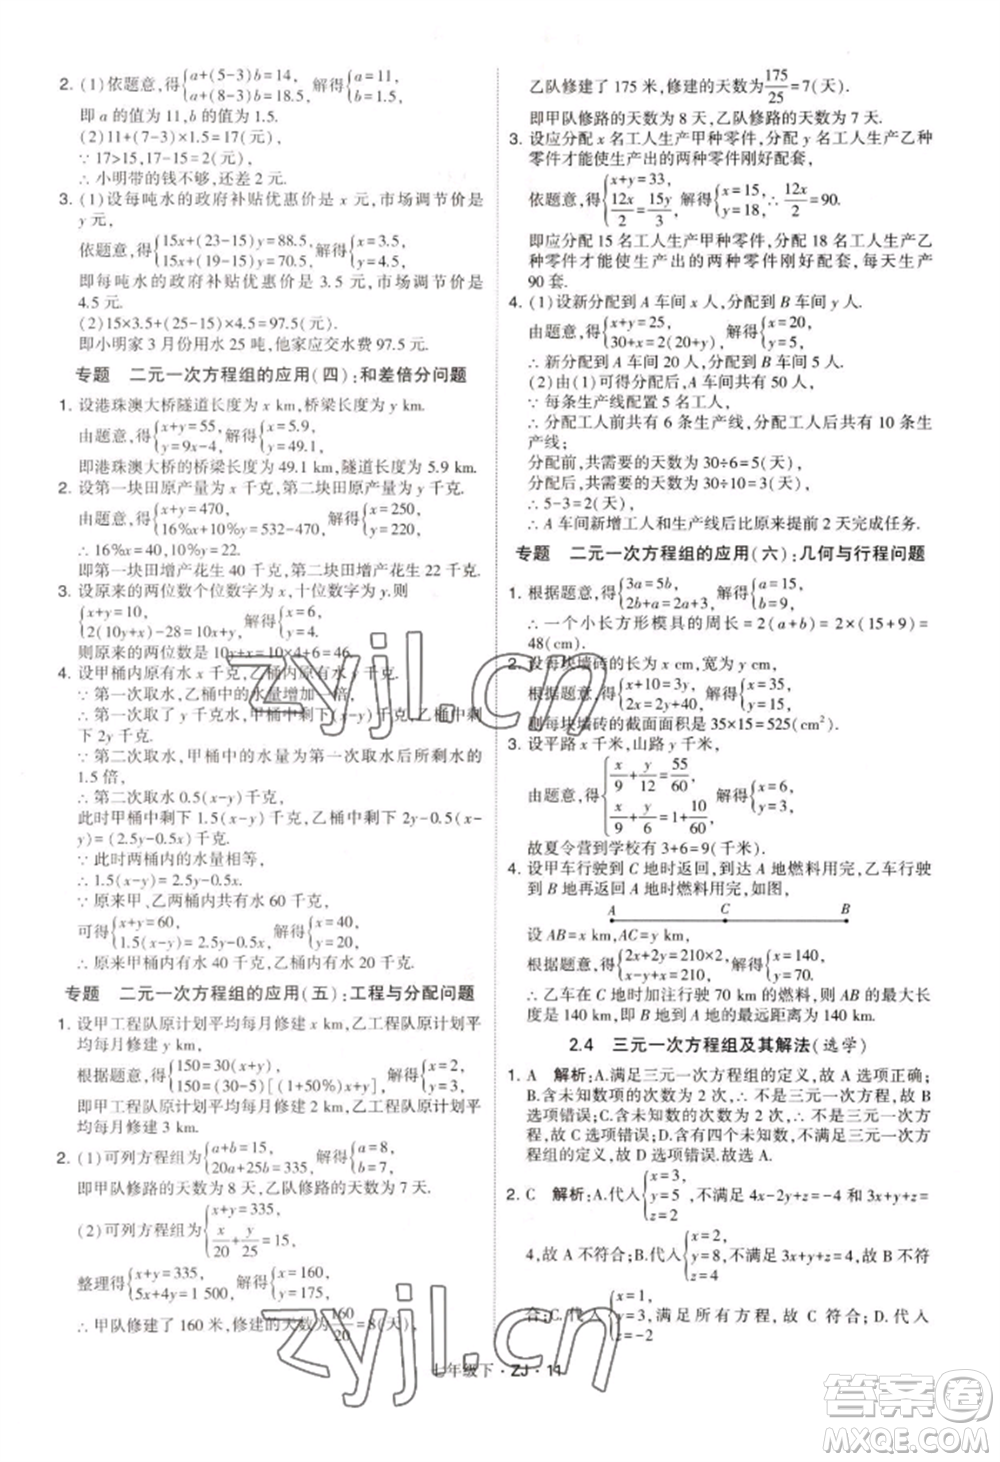 2. (1)依题意,得{a+(5-3)b=14, a+(8-3)b=18.5, 解得{a=11, b=1.5.
即 a 的值为 11, b 的值为 1.5.
(2)11+(7-3)×1.5=17(元).
∵ 17>15,17-15=2(元),
∴ 小明带的钱不够,还差 2 元.
3. (1)设每吨水的政府补贴优惠价是 x 元,市场调节价是
y 元,
依题意,得{15x+(23-15)y=88.5, 15x+(19-15)y=70.5, 解得{x=3.5, y=4.5.
即每吨水的政府补贴优惠价是 3.5 元,市场调节价是
4.5 元.
(2)15×3.5+(25-15)×4.5=97.5(元).
即小明家 3 月份用水 25 吨,他家应交水费 97.5 元.
专题 二元一次方程组的应用(四):和差倍分问题
1. 设港珠澳大桥隧道长度为 x km,桥梁长度为 y km.
由题意,得{x+y=55, y=9x-4, 解得{x=5.9, y=49.1.
即港珠澳大桥的桥梁长度为 49.1 km,隧道长度为 5.9 km.
2. 设第一块田原产量为 x 千克,第二块田原产量为 y 千克.
由题意,得{x+y=470, 16%x+10%y=532-470, 解得{x=250, y=220,
∴ 16%x=40,10%y=22.
即第一块田增产花生 40 千克,第二块田增产花生 22 千克.
3. 设原来的两位数个位数字为 x,十位数字为 y.则
{x+y=10, 2(10y+x)-28=10x+y, 解得{x=6, y=4.
则原来的两位数是 10y+x=10×4+6=46.
4. 设甲桶内原有水 x 千克,乙桶内原有水 y 千克.
∵ 第一次取水,乙桶中的水量增加一倍,
∴ 第一次取了 y 千克水,甲桶中剩下(x-y)千克,乙桶中剩
下 2y 千克.
∵ 第二次取水,甲桶中的水量为第一次取水后所剩水的
1.5 倍,
∴ 第二次取水 0.5(x-y)千克,
此时甲桶中剩下 1.5(x-y)千克,乙桶中剩下 2y-0.5(x-
y)千克=(2.5y-0.5x)千克.
∵ 此时两桶内的水量相等,
∴ 1.5(x-y)=2.5y-0.5x.
∵ 原来甲、乙两桶内共有水 60 千克,
可得{x+y=60, 1.5(x-y)=2.5y-0.5x, 解得{x=40, y=20.
∴ 原来甲桶内有水 40 千克,乙桶内有水 20 千克.
专题 二元一次方程组的应用(五):工程与分配问题
1. 设甲工程队原计划平均每月修建 x km,乙工程队原计划平
均每月修建 y km.
根据题意,得{150=30(x+y), 150=(30-5)[(1+50%)x+y], 解得{x=2, y=3.
故甲工程队原计划平均每月修建 2 km,乙工程队原计划平
均每月修建 3 km.
2. (1)可列方程组为{a+b=15, 20a+25b=335, 解得{a=8, b=7.
即甲队修路的天数为 8 天,乙队修路的天数为 7 天.
(2)可列方程组为{x+y=335, x/20+y/25=15,
整理得{x+y=335, 5x+4y=1 500, 解得{x=160, y=175.
∴ 甲队修建了 160 米,修建的天数为160/20=8(天),
乙队修建了 175 米,修建的天数为175/25=7(天).
即甲队修路的天数为 8 天,乙队修路的天数为 7 天.
3. 设应分配 x 名工人生产甲种零件,分配 y 名工人生产乙种
零件才能使生产出的两种零件刚好配套,
依题意,得{x+y=33, 12x/2=15y/3, 解得{x=15, y=18, ∴12x/2=90.
即应分配 15 名工人生产甲种零件,分配 18 名工人生产乙种
零件才能使生产出的两种零件刚好配套,每天生产
90 套.
4. (1)设新分配到 A 车间 x 人,分配到 B 车间 y 人.
由题意,得{x+y=25, 30+x=2(20+y), 解得{x=20, y=5.
∴ 新分配到 A 车间 20 人,分配到 B 车间 5 人.
(2)由(1)可得分配后,A 车间共有 50 人,
∵ 每条生产线配置 5 名工人,
∴ 分配工人前共有 6 条生产线,分配工人后共有 10 条生
产线;
分配前,共需要的天数为 30÷6=5(天),
分配后,共需要的天数为 30÷10=3(天),
∴ 5-3=2(天),
∴ A 车间新增工人和生产线后比原来提前 2 天完成任务.
专题 二元一次方程组的应用(六):几何与行程问题
1. 根据题意,得{3a=5b, 2b+a=2a+3, 解得{a=15, b=9.
∴ 一个小长方形模具的周长=2(a+b)=2×(15+9)=
48(cm).
2. 设每块墙砖的长为 x cm,宽为 y cm,
根据题意,得{x+10=3y, 2x=2y+40, 解得{x=35, y=15,
则每块墙砖的截面面积是 35×15=525(cm²).
3. 设平路 x 千米,山路 y 千米,
由题意,得{x/9+y/12=55/60, x/9+y/6=1+10/60, 解得{x=6, y=3.
故夏令营到学校有 3+6=9(千米).
4. 设甲车行驶到 C 地时返回,到达 A 地燃料用完,乙车行驶
到 B 地再返回 A 地时燃料用完,如图:
A C B
设 AB=x km,AC=y km,
根据题意,得{2x+2y=210×2, x-y+x=210, 解得{x=140, y=70.
∴ 乙车在 C 地时加注行驶 70 km 的燃料,则 AB 的最大长
度是 140 km,即 B 地的最远距离为 140 km.
2.4 三元一次方程组及其解法(选学)
1. A 解析:A.满足三元一次方程组的定义,故 A 选项正确;
B.含未知数项的次数为 2 次,∴ 不是三元一次方程,故 B
选项错误;C.含未知数的次数为 2 次,∴ 不是三元一次方
程,故 C 选项错误;D.含有四个未知数,∴ 不满足三元一
次方程组的定义,故 D 选项错误.故选 A.
2. C 解析:A.代入{x=3, y=5, z=2, 不满足 4x-2y+z=-4 或 x+y+z=
4,故 A 不符合;B.代入{x=2, y=8, z=4, 不满足 3x+y+z=1,故 B 不符
合;C.代入{x=1, y=3, z=-2, 满足所有方程,故 C 符合;D.代入
七年级下·ZJ·11
zyjl.cn
zyjl.cn
答案圈
MXQE.COM